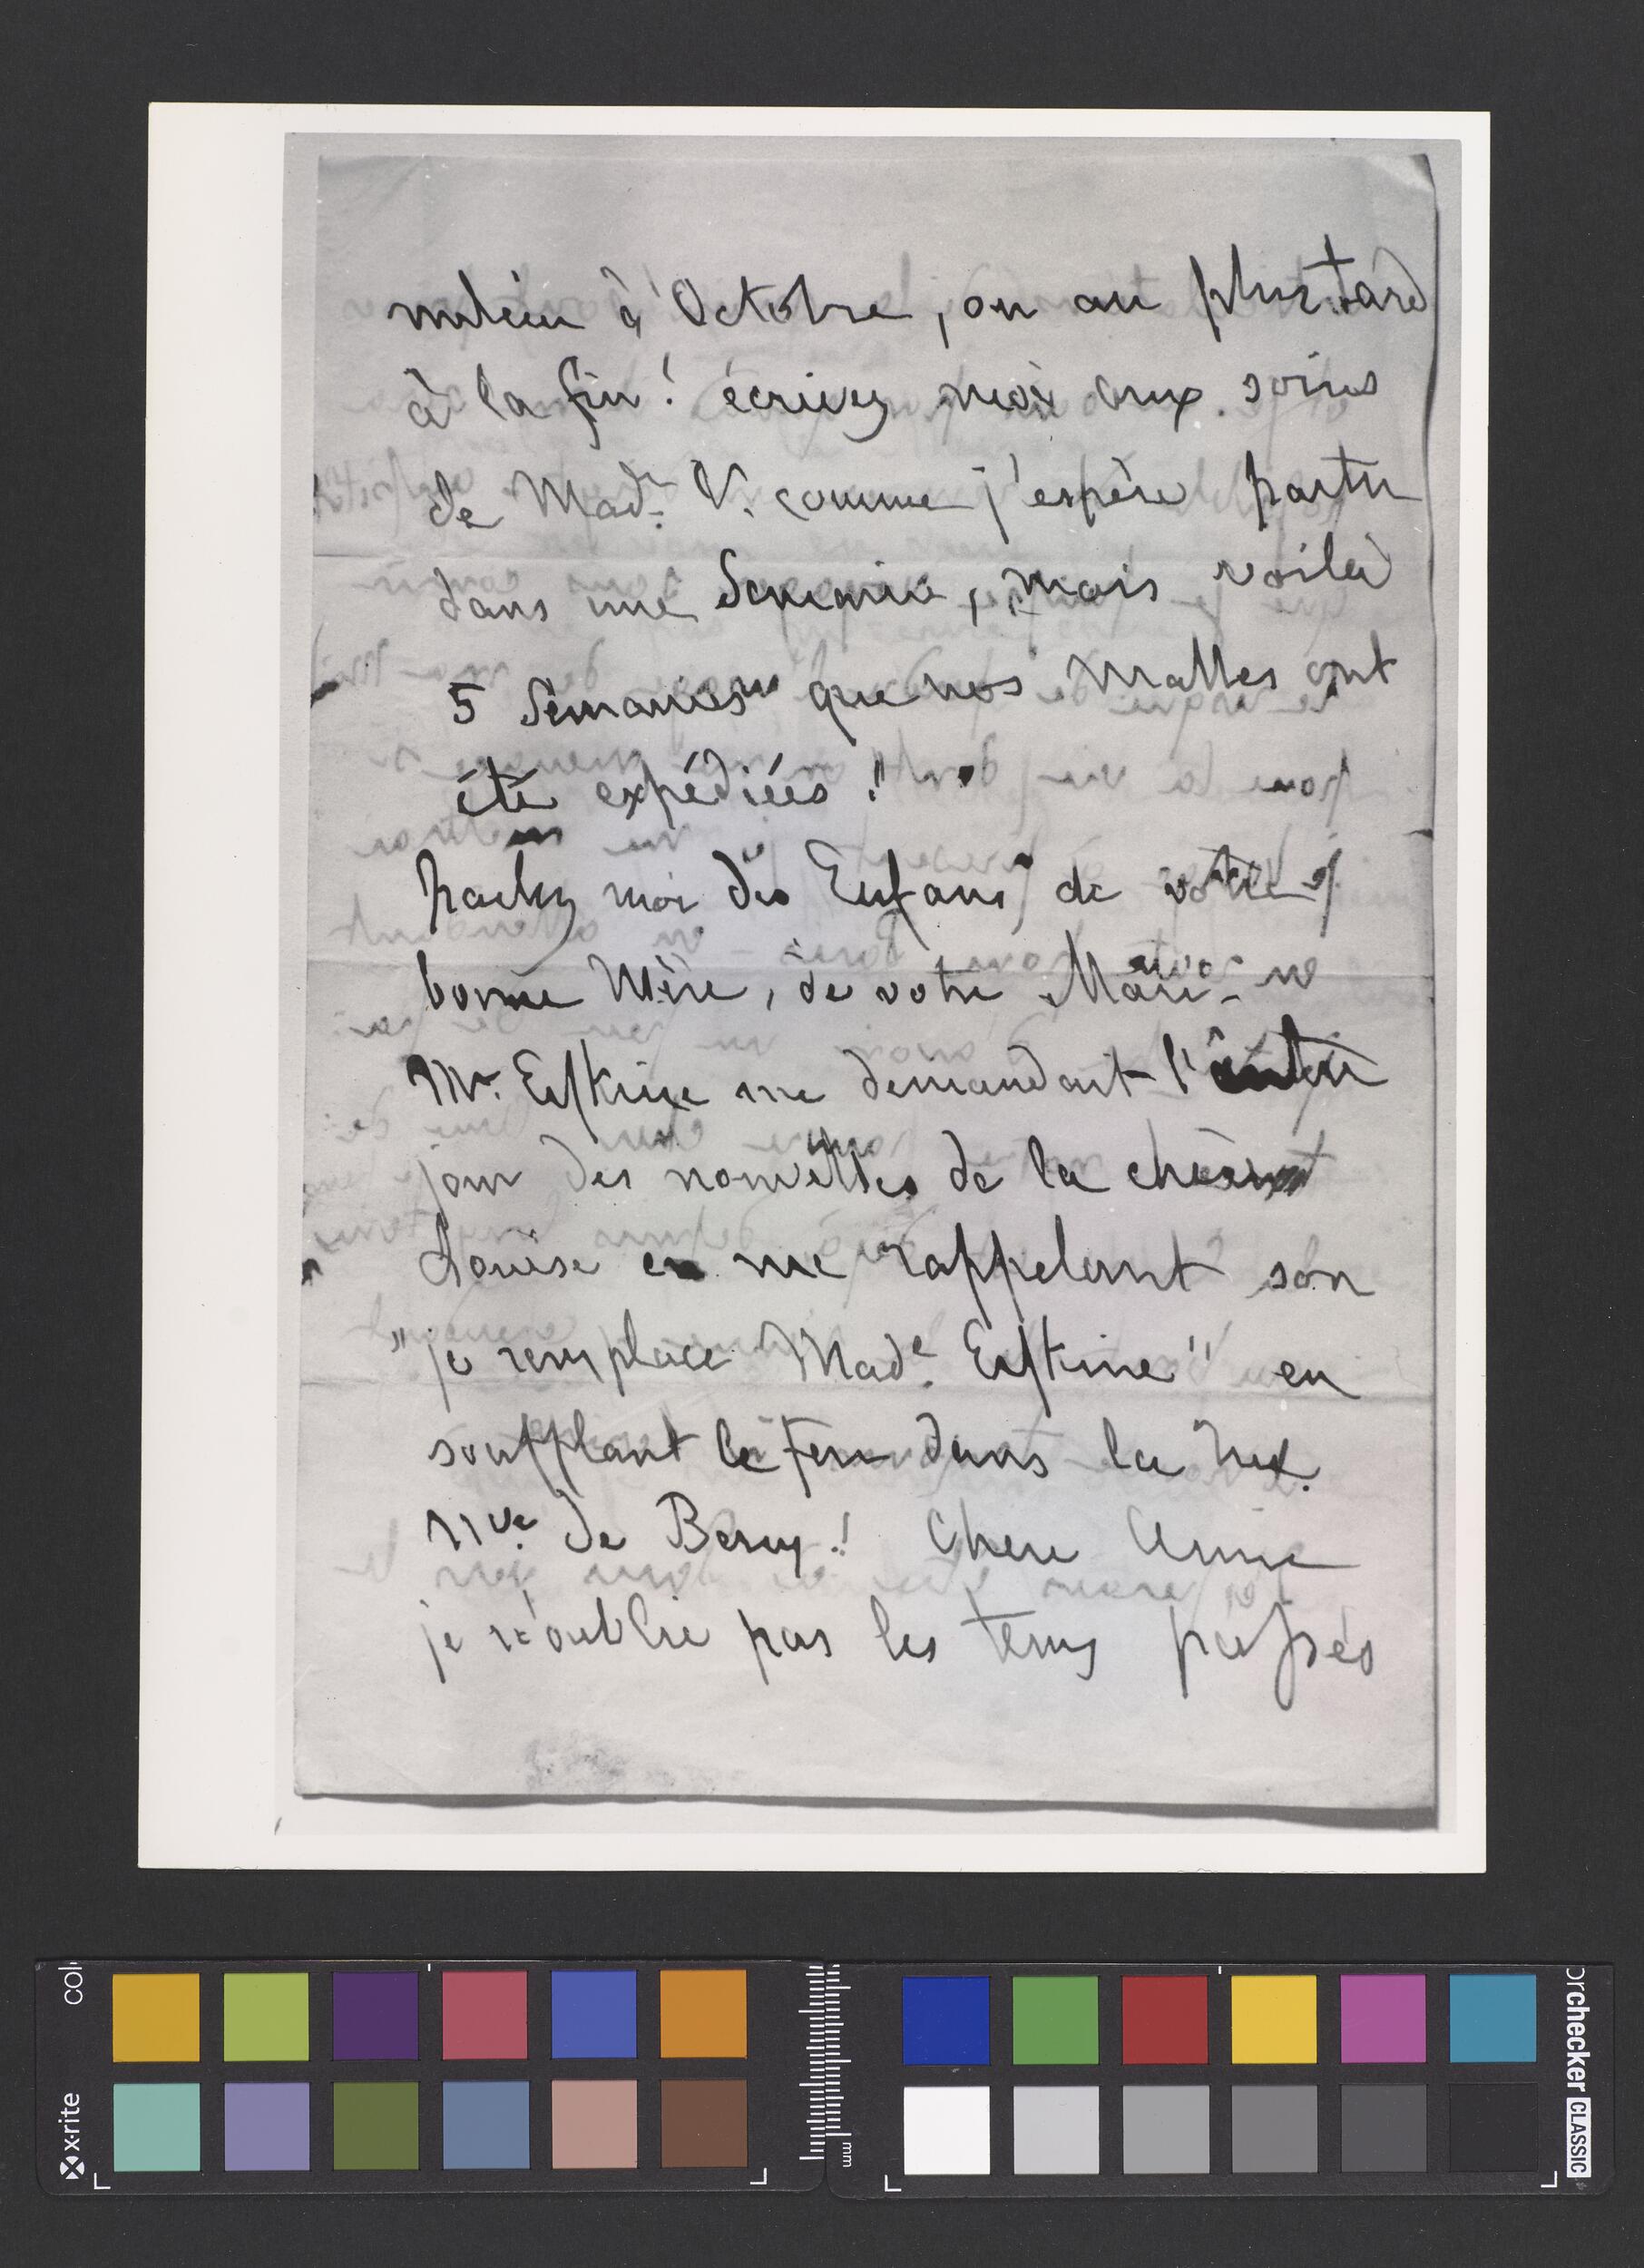 milieu d'Octobre, ou au plus tard
à la fin! écrivez moi aux soins
de Madᵉ. V. comme j'espère partir
dans une Semaine, mais voilà
5 Semaines que nos Malles ont
été expédiées !!
parlez moi des Enfans, de votre
bonne Mère, de votre Mari -
Mr. Erskine me demandait l'autre
jour des nouvelles de la chère
Louise en me rappelant son
"je remplace Madᵉ. Erskine" en
soufflant le feu dans la rue
nve. de Berry! Chere Amie
je n'oublie pas les tems passés
col
x·rite
mm
orchecker CLASSIC